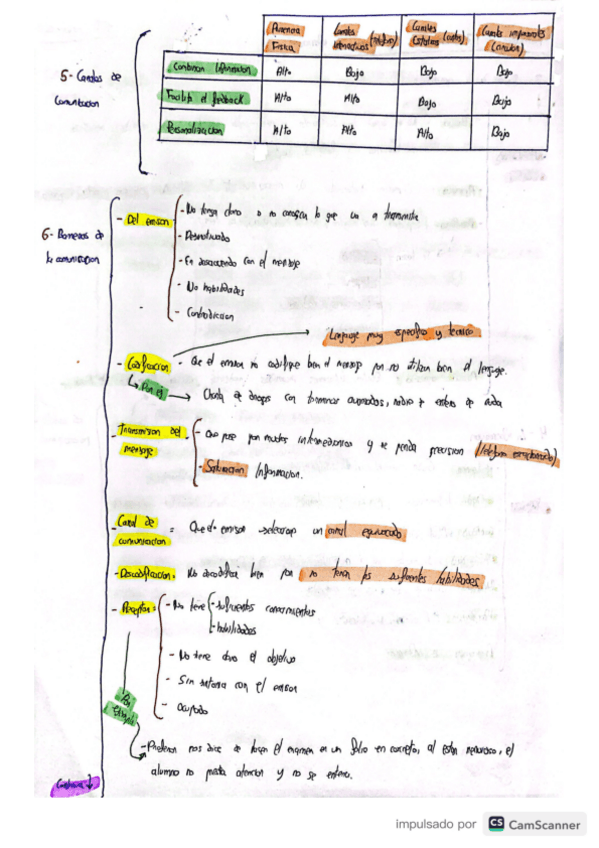 Presencia Física | Canales interactivos (teléfono) | Canales Estáticos (cartas) | Canales impersonales (carteles)
5- Canales de comunicacion
Combinan información | Alto | Bajo | Bajo | Bajo
Facilita el feedback | Alto | Alto | Bajo | Bajo
Personalización | Alto | Alto | Alto | Bajo
6- Barreras de la comunicacion
- Del emisor
- No tenga claro o no conozca lo que va a transmitir
- Desmotivado
- En desacuerdo con el mensaje
- No habilidades
- Contradiccion
Lenguaje muy especifico y tecnico.
- Codificacion - Que el emisor no codifique bien el mensaje por no utilizar bien el lenguaje.
Por ej → Charla de drogas con terminos avanzados, nadie se entera de nada
- Transmision del mensaje
- Que pase por muchos intermediarios y se pierda precision (telefono escacharrado)
- Saturacion informacion.
- Canal de comunicacion = Que el emisor seleccione un canal equivocado
- Descodificacion: No descodificar bien por no tener las suficientes habilidades
- Receptor:
- No tiene - suficientes conocimientos
- habilidades
- No tiene claro el objetivo
- Sin sintonia con el emisor
- Ocupado
Por ejemplo
- Profesor nos dice de hacer el examen en un folio en concreto, al estar nervioso, el
alumno no presta atencion y no se entera.
Continua ↓
impulsado por CS CamScanner